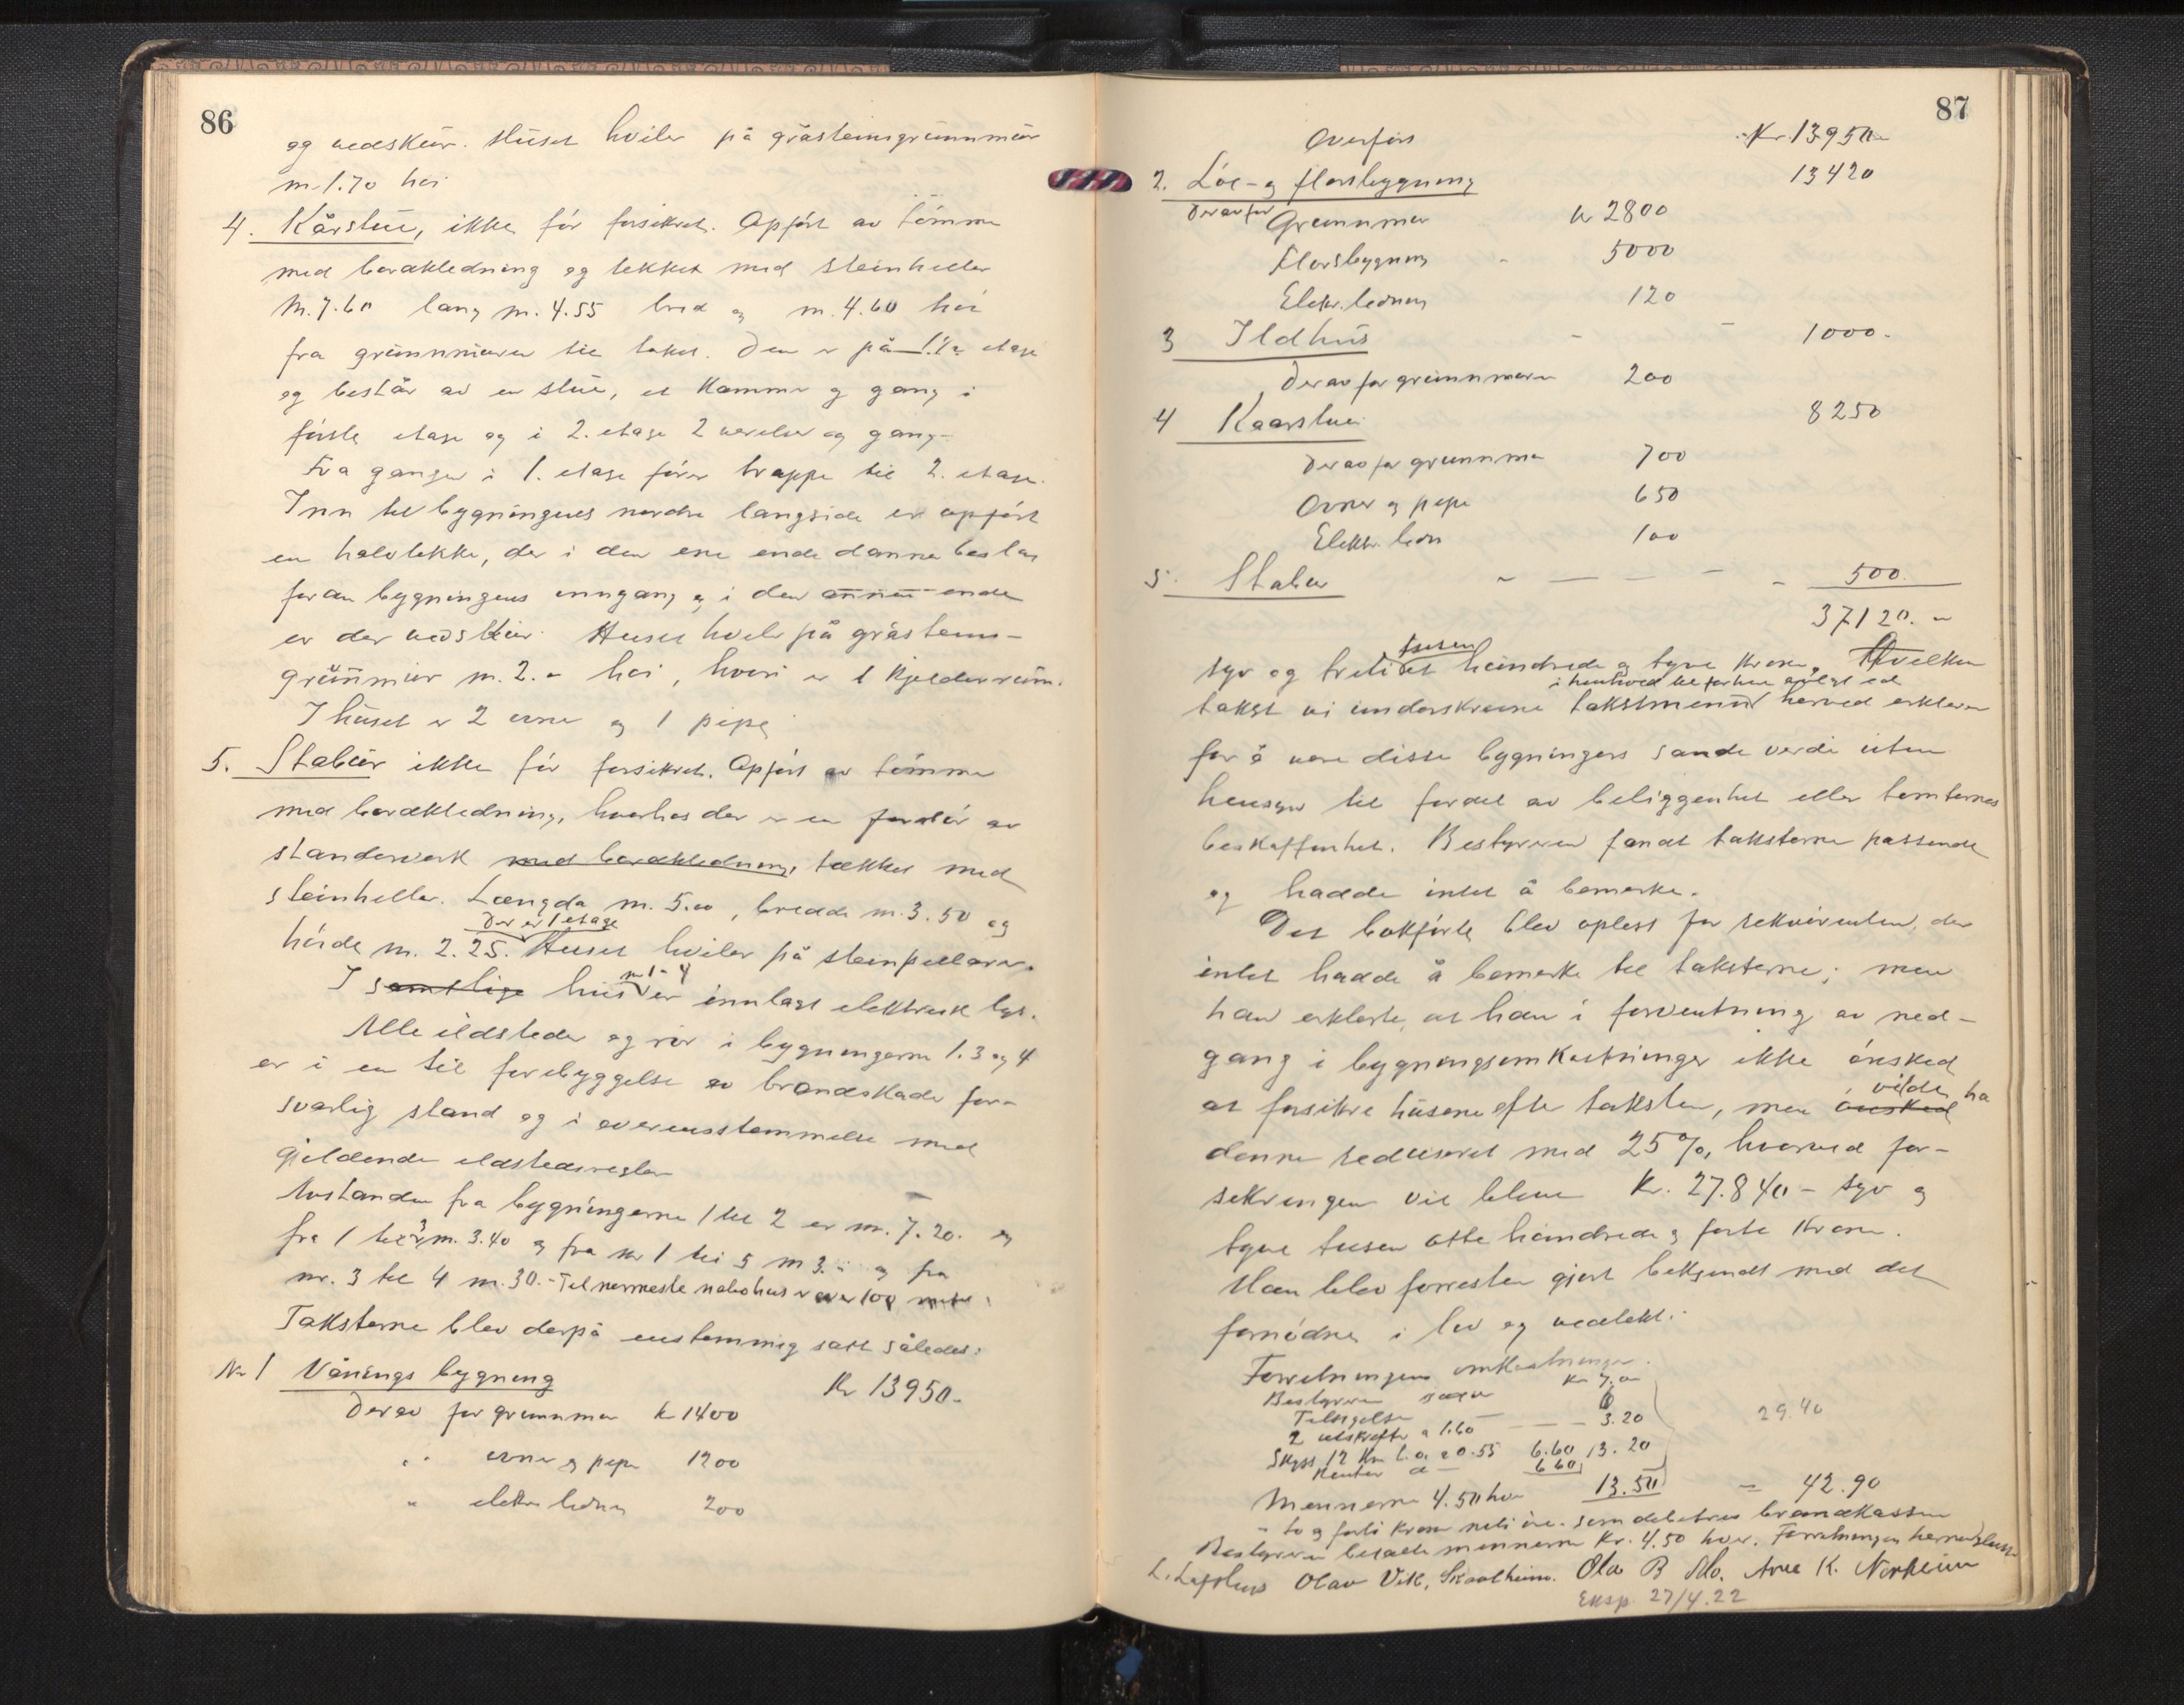 86
og vedskur. Huset hviler på gråsteinsgrunnmur
m. 1.70 høi
4. Kårstue, ikke før forsikret. Opført av tømmer
med bordkledning og tekket med steinheller
M. 7.60 lang m. 4.55 bred og m. 4.60 høi
fra grunnmuren til taket. Den er på 1 1/2 etage
og består av en stue, et kammer og gang i
første etage og i 2. etage 2 værelser og gang.
Fra gangen i 1. etage fører trappe til 2. etage.
Inn til bygningens nordre langside er opført
en halvtekke, der i den ene ende danner beslag
foran bygningens inngang og i den annen ende
er der vedskur. Huset hviler på gråsteins-
grunnmur m. 2.- høi, hvori er 1 kjelderrum.
I huset er 2 ovner og 1 pipe
5. Stabur ikke før forsikret. Opført av tømmer
med bordkledning, hvorhos der er en fordør av
standerverk med bordkledning, tækket med
steinheller. Længde m. 5.00, bredde m. 3.50 og
Der er 1 etage
høide m. 2.25. Huset hviler på steinpillarer.
I samtlige hus nr 1-4 er innlagt elektrisk lys.
Alle ildsteder og rør i bygningerne 1. 3 og 4
er i en til forebyggelse av brandskade for-
svarlig stand og i overensstemmelse med
gjeldende ildstedsregler
Avstanden fra bygningerne 1 til 2 er m. 7.20. og
fra 1 til 3 m. 3.40 og fra nr 1 til 5 m 3.- og fra
nr. 3 til 4 m. 30.- Til nermeste nabohus er over 100 meter.
Taksterne blev derpå enstemmig satt således:
No 1 Vånings bygning Kr 13950.-
Derav for grunnmur kr 1400
" ovner og pipe 1200
" elektr. ledn 200
87
Overført Kr. 13950.-
2. Løe- og florsbygning 13420
Derav for Grunnmur kr 2800
Florsbygning - 5000
Elektr. ledning 120
3 Ildhus - - 1000.-
Derav for grunnmuren 200
4 Kaarstue 8250
Derav for grunnmur 700
Ovner og pipe 650
Elektr. ledn 100
5. Stabur - - - - 500.
37120.-
tusen
syv og tretti et hundrede og tyve kroner. Hvilken
i henhold til forhen avlagt ed
takst vi underskrevne takstmenn herved erklærer
for å være disse bygningers sande verdi uten
hensyn til fordel av beliggenhet eller tomternes
beskaffenhet. Bestyreren fandt taksterne passende
og hadde intet å bemerke.
Det bokførte blev oplest for rekvirenten, der
intet hadde å bemerke til taksterne; men
han erklærte, at han i forventning av ned-
gang i bygningsomkostninger ikke ønsked
at forsikre husene efter taksten, men ønsked vilde ha
denne redusert med 25%, hvorved for-
sikringen vil bliva Kr. 27.840 - syv og
tyve tusen otte hundrede og førti kroner.
Han blev forresten gjort bekjendt med det
fornødne i lov og vedtekt.
Forretningens omkostninger.
Bestyreren Kr 7.00
Tilsigelse -
2 utskrifter a 1.60 - - - 3.20 29.40
Skyss 12 Km a 0.55 6.60 13.20
6.60
Mennerne 4.50 hver 13.50 - 42.90
- to og førti kroner nitti øre - som debeteres brandkassen
Bestyreren betalte mennerne kr. 4.50 hver. Forretningen hermed slutt
L. Lofthus Olav Vik, Skaalheim. Ola B Mo. Arne K. Norheim
Eksp. 27/4.22